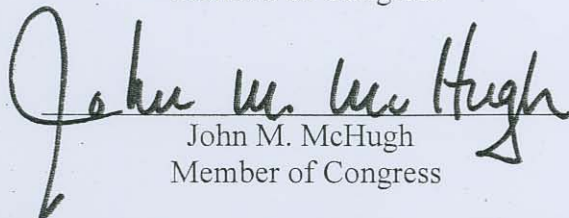 John M. McHugh
John M. McHugh
Member of Congress